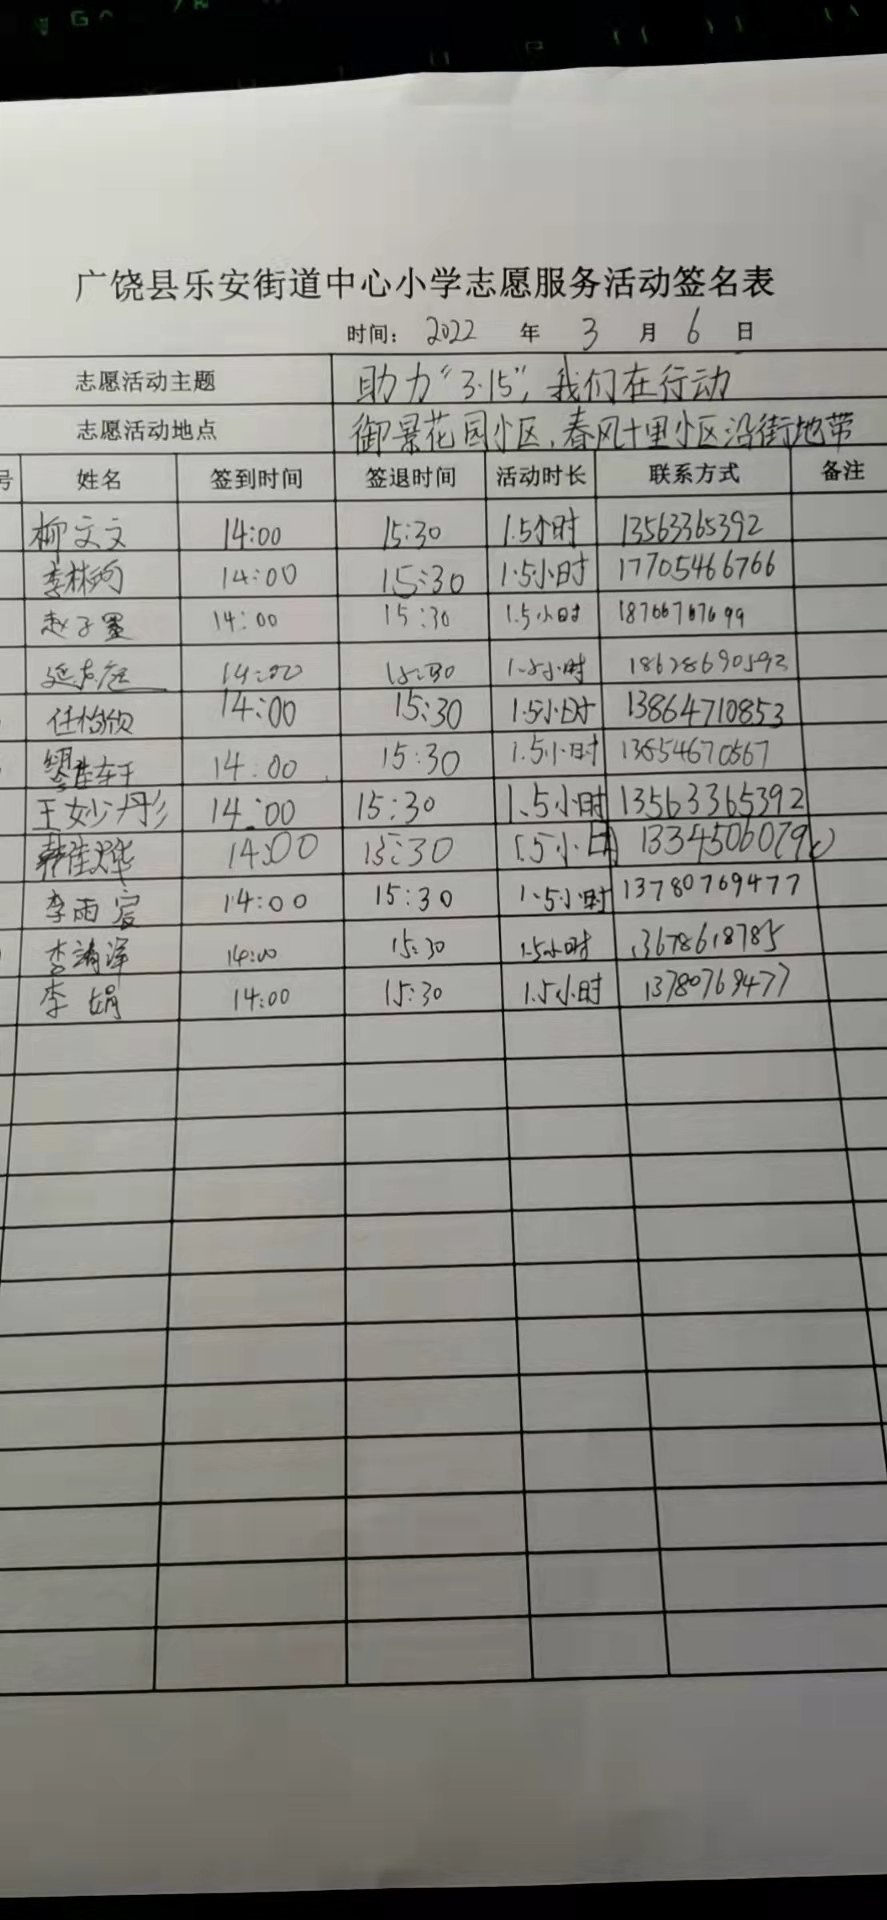 广饶县乐安街道中心小学志愿服务活动签名表
时间： 2022 年 3 月 6 日
志愿活动主题 助力“3·15”，我们在行动
志愿活动地点 御景花园小区、春风十里小区沿街地带
号 姓名 签到时间 签退时间 活动时长 联系方式 备注
柳文文 14:00 15:30 1.5小时 13563365392
李林珣 14:00 15:30 1.5小时 17705466766
赵子墨 14:00 15:30 1.5小时 18766767699
延 14:00 15:30 1.5小时 18628690592
任怡欣 14:00 15:30 1.5小时 13864710853
14:00 15:30 1.5小时 13854670567
王妙彤 14:00 15:30 1.5小时 13563365392
韩佳烨 14:00 15:30 1.5小时 1334506079
李雨宸 14:00 15:30 1.5小时 13780769477
李靖泽 14:00 15:30 1.5小时 13678618785
李娟 14:00 15:30 1.5小时 13780769477